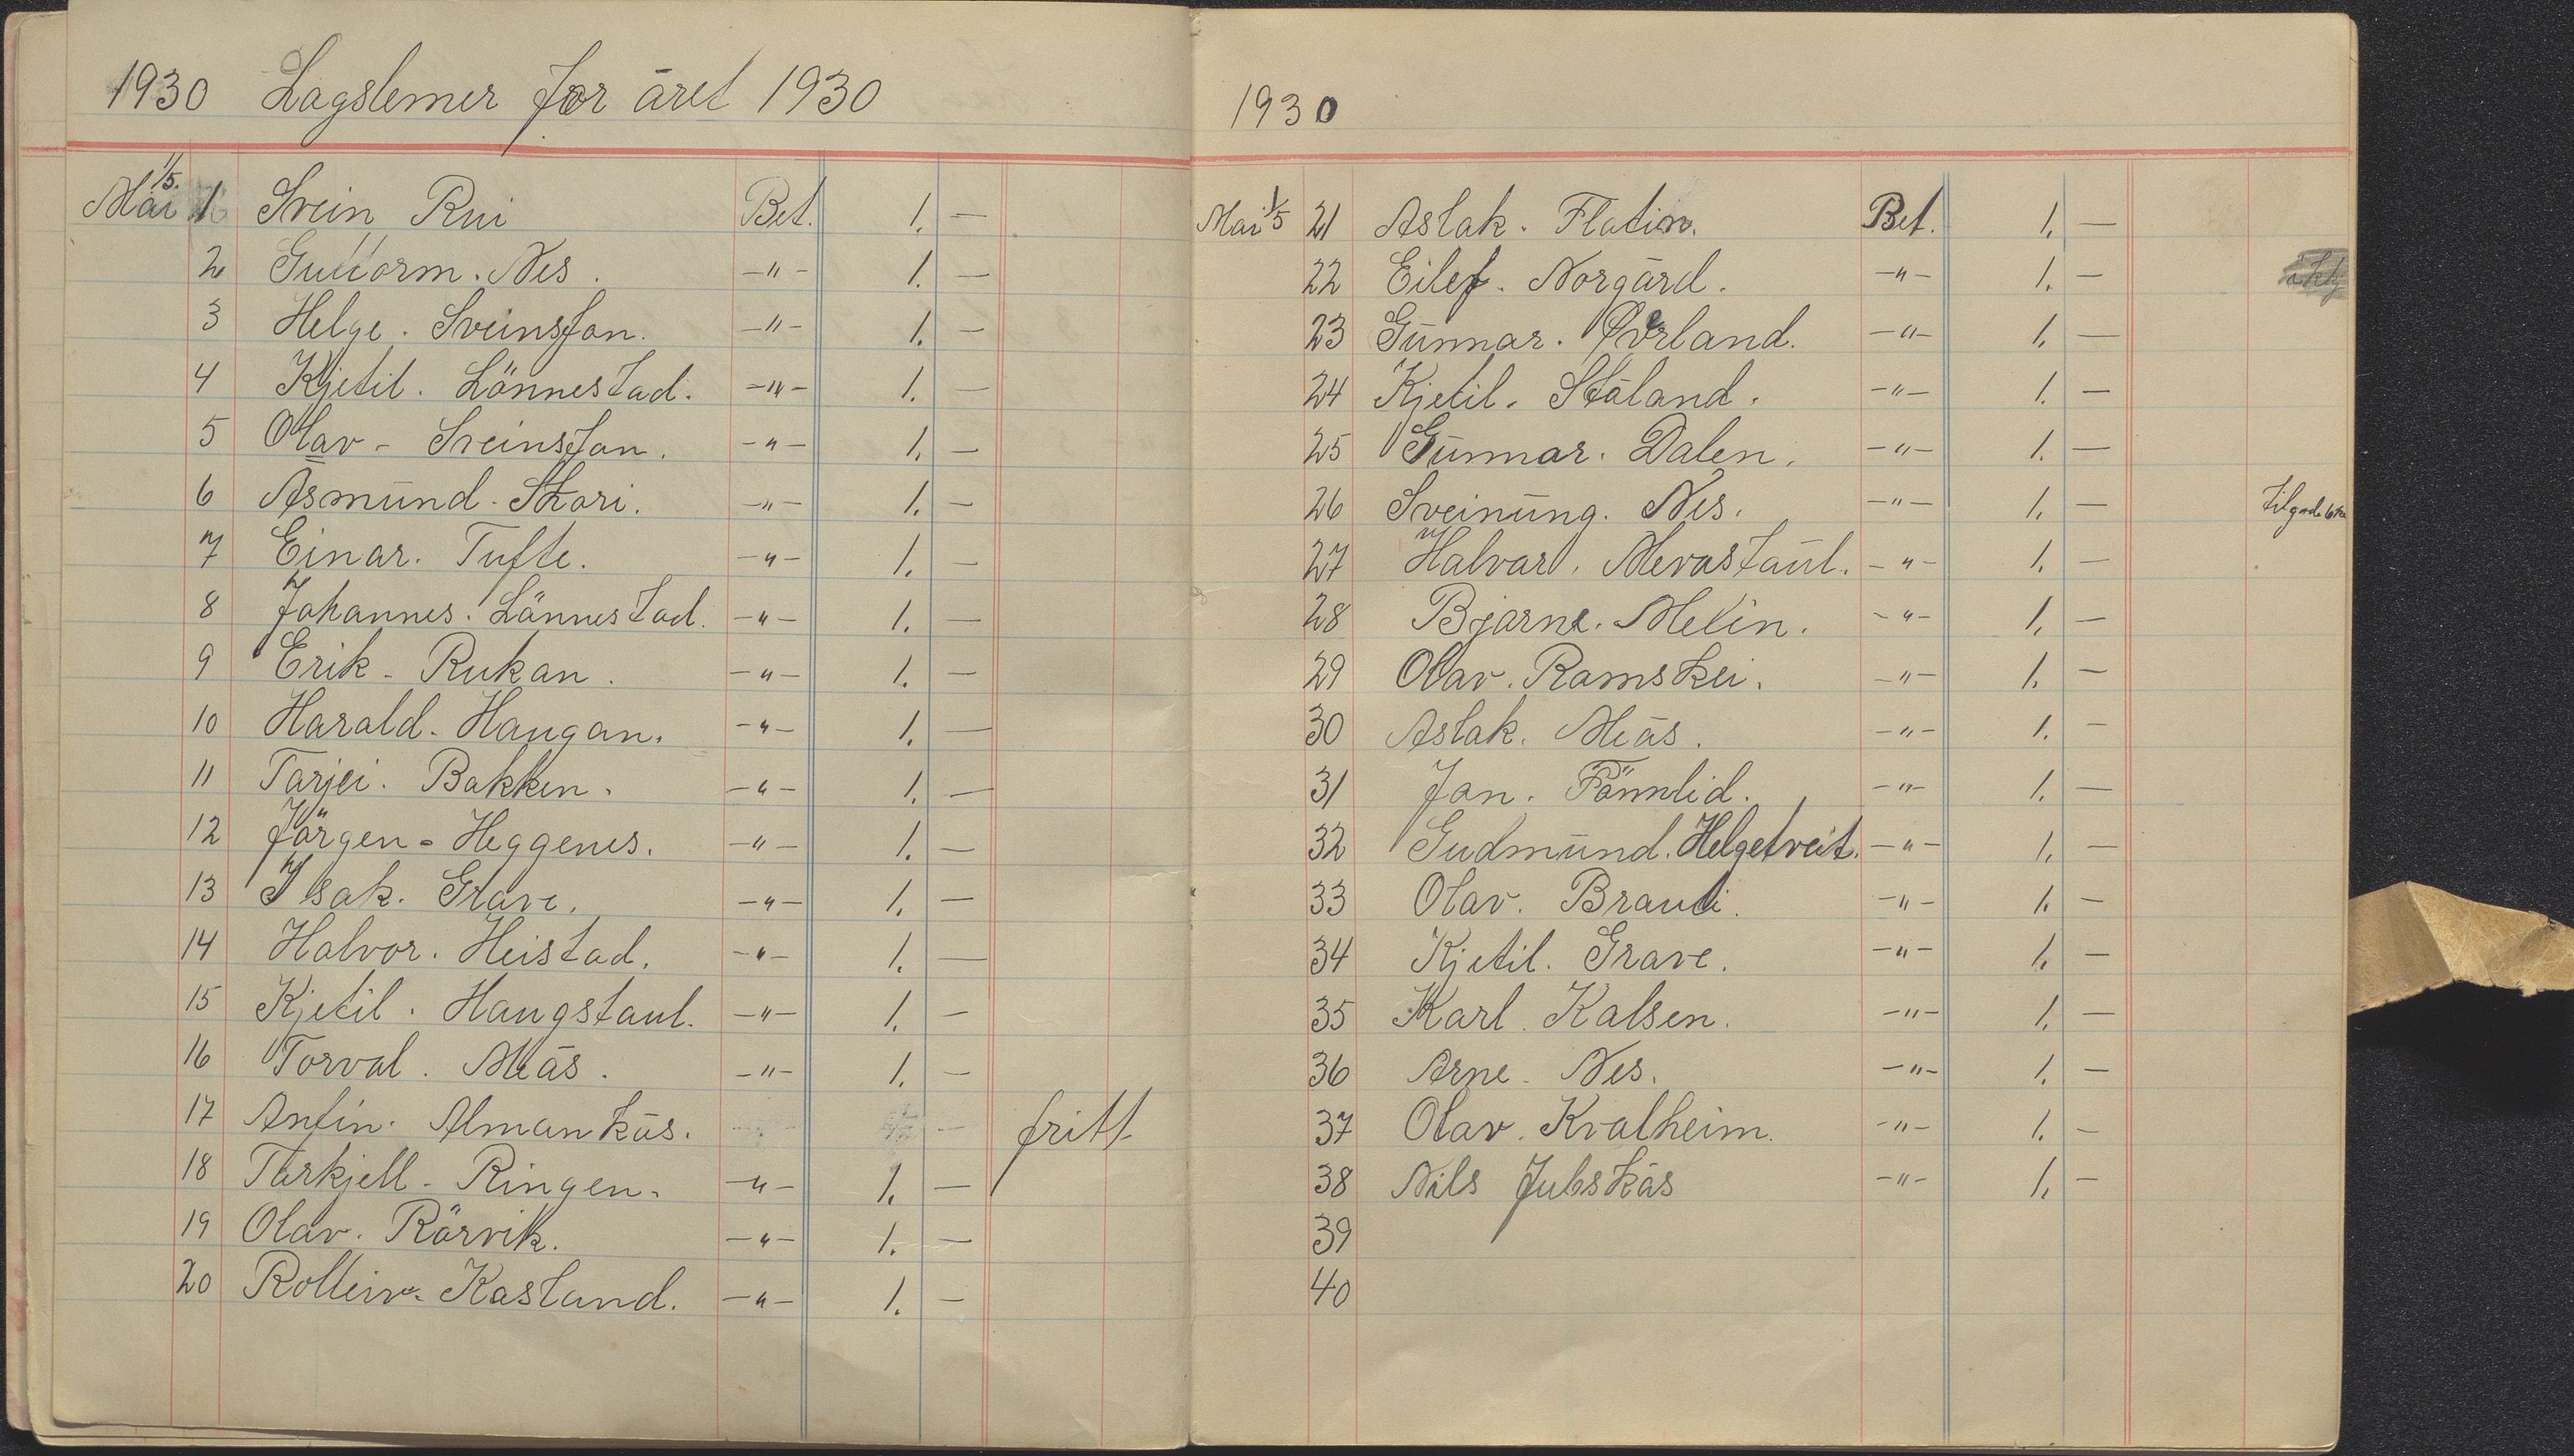 1930 Lagslemer for året 1930
Mai 1/5. 1 Svein Rui Bet. 1. —
2 Guttorm. Nes. —"— 1. —
3 Helge. Sveinsson. —"— 1. —
4 Kjetil. Lönnestad. —"— 1. —
5 Olav - Sveinsson. —"— 1. —
6 Åsmund - Skori. —"— 1. —
7 Einar. Tufte. —"— 1. —
8 Johannes. Lönnestad. —"— 1. —
9 Erik - Rukan. —"— 1. —
10 Harald - Haugan. —"— 1. —
11 Tarjei. Bakken. —"— 1. —
12 Jörgen - Heggenes. —"— 1. —
13 Isak. Grave. —"— 1. —
14 Halvor. Heistad. —"— 1. —
15 Kjetil. Haugstaul. —"— 1. —
16 Torval. Meås. —"— 1. —
17 Anfin. Almankås. — fritt
18 Tarkjell - Ringen. —"— 1. —
19 Olav. Rörvik. —"— 1. —
20 Rolleiv - Kasland. —"— 1. —
1930
Mai 1/5 21 Aslak. Flatin. Bet. 1. —
22 Eilef. Norgård. —"— 1. —
23 Gunnar. Øverland. —"— 1. —
24 Kjetil. Ståland. —"— 1. —
25 Gunnar. Dalen. —"— 1. —
26 Sveinung. Nes. —"— 1. —
27 Halvar. Mevastaul. —"— 1. —
28 Bjarne. Melin. —"— 1. —
29 Olav. Ramskei. —"— 1. —
30 Aslak. Meås. —"— 1. —
31 Jon. Fönnlid. —"— 1. —
32 Gudmund. Helgetveit. —"— 1. —
33 Olav. Brauti. —"— 1. —
34 Kjetil. Grave. —"— 1. —
35 Karl. Kalsen. —"— 1. —
36 Arne - Nes. —"— 1. —
37 Olav. Kvalheim. —"— 1. —
38 Nils Juvskås —"— 1. —
39
40